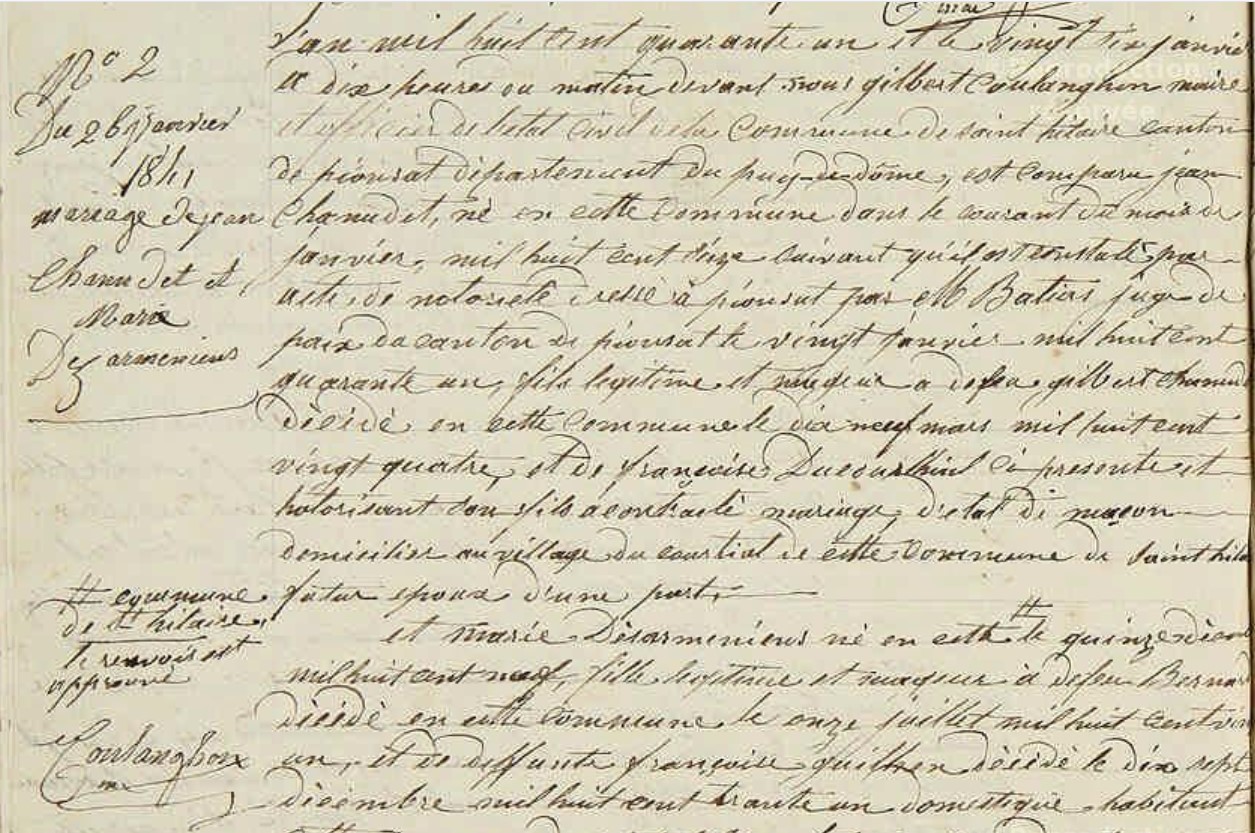 N° 2
Du 26 janvier
1841
mariage de jean
Chanudet et
Marie
Desarmeniens
# commune
de St hilaire
le renvois est
approuvé
Coulanghon
me
L'an mil huit cent quarante un et le vingt six janvier
a dix heures du matin devant nous gilbert Coulanghon maire
et officier de letat civil de la Commune de saint hilaire canton
de pionsat département du puy-de-dôme, est comparu jean
Chanudet, né en cette Commune dans le courant du mois de
janvier, mil huit cent seize suivant qu'il est constaté par
acte de notorieté dressé à pionsat par M Batias juge de
paix du canton de pionsat le vingt janvier mil huit cent
quarante un, fils legitime et majeur a defeu gilbert chanud
décédé en cette Commune le dix neuf mars mil huit cent
vingt quatre, et de françoise Ducourthial ci presente et
hotorisant son fils a contracté mariage, d'etat de maçon
domicilier au village du courtial de cette Commune de Saint hila
futur epoux d'une part,
et marie Désarmeniens né en cette # le quinze décem
mil huit cent neuf, fille legitime et majeur à defeu Bernard
décédé en cette Commune le onze juillet mil huit cent vin
un, et de deffunte françoise décédé le dix sept
décembre mil huit cent trante un domestique habitant